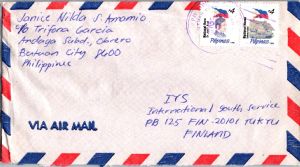 Janice Nilda S. Amamio
c/o Trifona Garcia
Andaya Subd., Obrero
Butuan City 8600
Philippine
Pilipinas
Pilipinas
IYS
International Youth Service
PB 125 FIN-20101 TURKU
FINLAND
VIA AIR MAIL